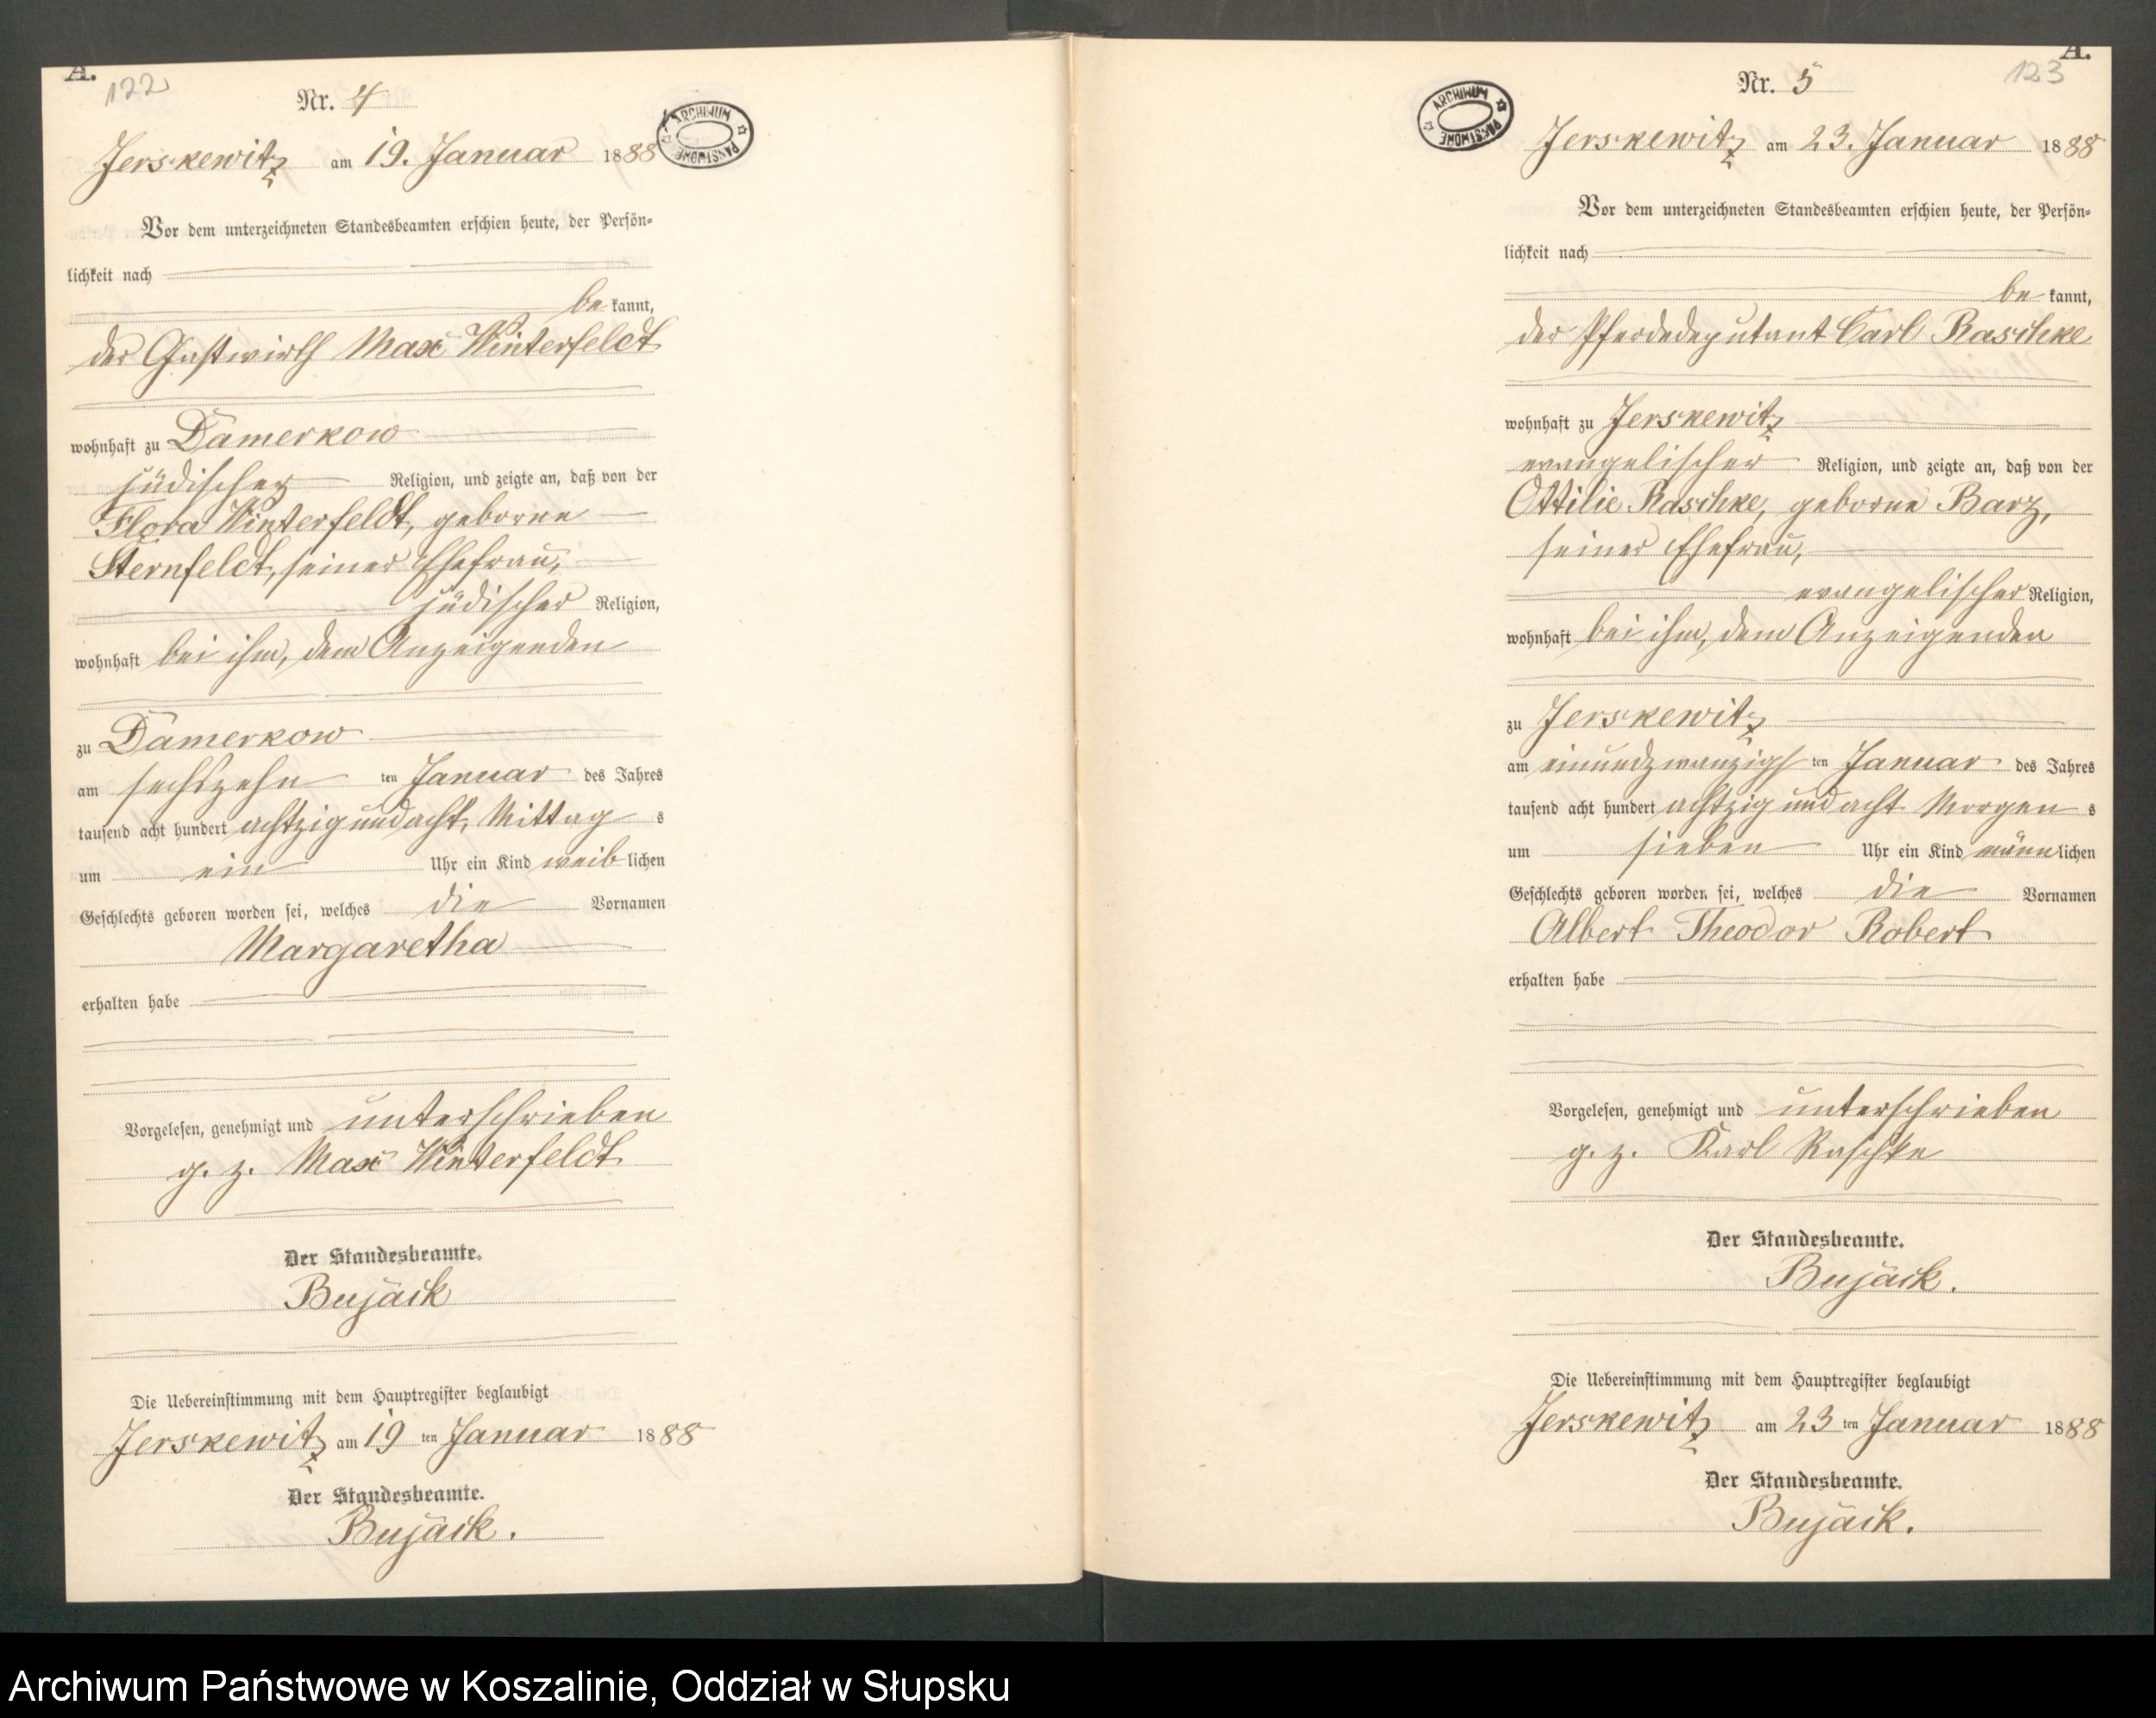 A.
122
Nr. 4
ARCHIWUM PAŃSTWOWE
Jerskewitz am 19. Januar 1888
Vor dem unterzeichneten Standesbeamten erschien heute, der Persön-
lichkeit nach
be kannt,
der Gastwirth Max Winterfeldt
wohnhaft zu Damerkow
jüdischer Religion, und zeigte an, daß von der
Flora Winterfeldt, geborne
Sternfeldt, seiner Ehefrau,
jüdischer Religion,
wohnhaft bei ihm, dem Anzeigenden
zu Damerkow
am sechszehn ten Januar des Jahres
tausend acht hundert achtzig und acht, Mittag s
um ein Uhr ein Kind weib lichen
Geschlechts geboren worden sei, welches die Vornamen
Margaretha
erhalten habe
Vorgelesen, genehmigt und unterschrieben
g. z. Max Winterfeldt
Der Standesbeamte.
Bujäck
Die Uebereinstimmung mit dem Hauptregister beglaubigt
Jerskewitz am 19 ten Januar 1888
Der Standesbeamte.
Bujäck.
A.
123
Nr. 5
ARCHIWUM PAŃSTWOWE
Jerskewitz am 23. Januar 1888
Vor dem unterzeichneten Standesbeamten erschien heute, der Persön-
lichkeit nach
be kannt,
der Pferdedeputant Carl Raschke
wohnhaft zu Jerskewitz
evangelischer Religion, und zeigte an, daß von der
Ottilie Raschke, geborne Barz,
seiner Ehefrau,
evangelischer Religion,
wohnhaft bei ihm, dem Anzeigenden
zu Jerskewitz
am einundzwanzigs ten Januar des Jahres
tausend acht hundert achtzig und acht Morgen s
um sieben Uhr ein Kind männ lichen
Geschlechts geboren worden sei, welches die Vornamen
Albert Theodor Robert
erhalten habe
Vorgelesen, genehmigt und unterschrieben
g. z. Karl Raschke
Der Standesbeamte.
Bujäck.
Die Uebereinstimmung mit dem Hauptregister beglaubigt
Jerskewitz am 23 ten Januar 1888
Der Standesbeamte.
Bujäck.
Archiwum Państwowe w Koszalinie, Oddział w Słupsku